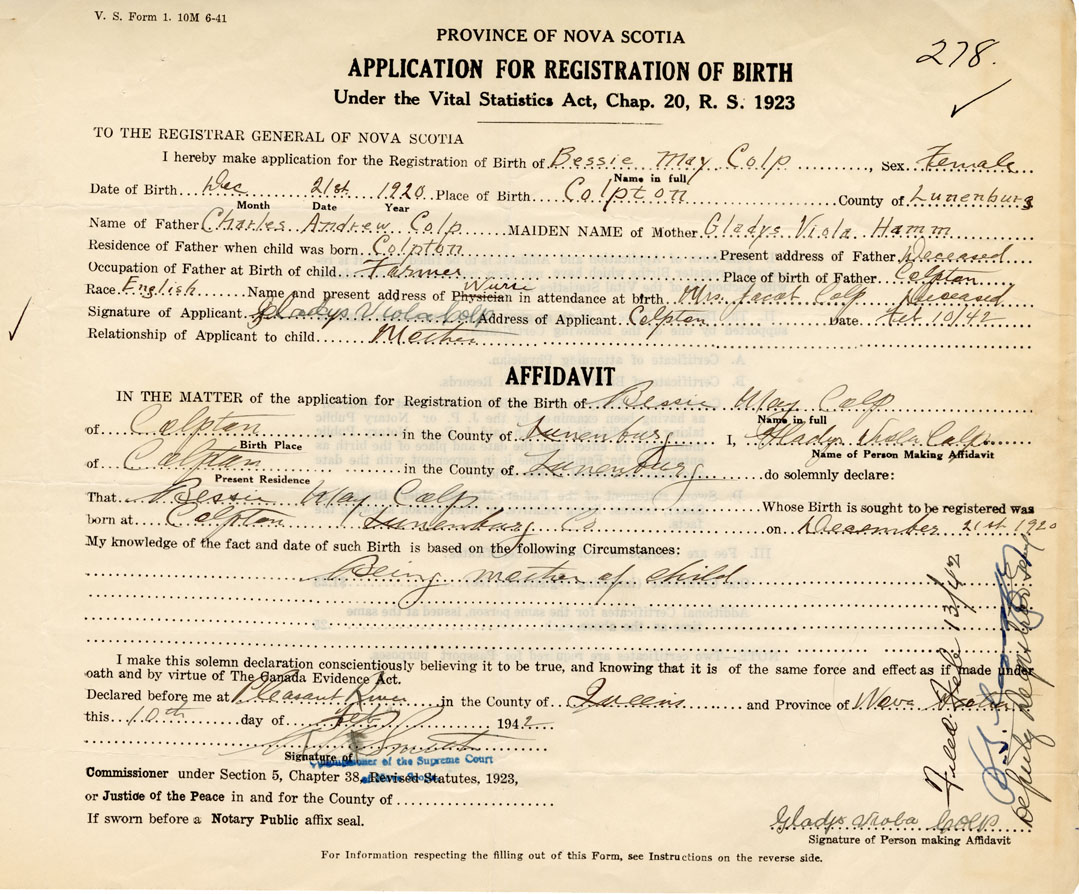 V. S. Form 1. 10M 6-41
PROVINCE OF NOVA SCOTIA
278.
APPLICATION FOR REGISTRATION OF BIRTH
Under the Vital Statistics Act, Chap. 20, R. S. 1923
TO THE REGISTRAR GENERAL OF NOVA SCOTIA
I hereby make application for the Registration of Birth of Bessie May Colp, Sex Female
Name in full
Date of Birth Dec 21st 1920 Place of Birth Colpton County of Lunenburg
Month Date Year
Name of Father Charles Andrew Colp MAIDEN NAME of Mother Gladys Viola Hamm
Residence of Father when child was born Colpton Present address of Father Deceased
Occupation of Father at Birth of child Farmer Place of birth of Father Colpton
Nurse
Race English Name and present address of Physician in attendance at birth Mrs. Jacob Colp Deceased
Signature of Applicant Gladys Viola Colp Address of Applicant Colpton Date Feb 10/42
Relationship of Applicant to child Mother
AFFIDAVIT
IN THE MATTER of the application for Registration of the Birth of Bessie May Colp
Name in full
of Colpton in the County of Lunenburg I, Gladys Viola Colp
Birth Place Name of Person Making Affidavit
of Colpton in the County of Lunenburg do solemnly declare:
Present Residence
That Bessie May Colp Whose Birth is sought to be registered was
born at Colpton Lunenburg Co on December 21st 1920
My knowledge of the fact and date of such Birth is based on the following Circumstances:
Being mother of child
I make this solemn declaration conscientiously believing it to be true, and knowing that it is of the same force and effect as if made under
oath and by virtue of The Canada Evidence Act.
Declared before me at Pleasant River in the County of Queens and Province of Nova Scotia
this 10th day of Feb 1942
Signature of
Commissioner of the Supreme Court
Commissioner under Section 5, Chapter 38, Revised Statutes, 1923,
or Justice of the Peace in and for the County of
If sworn before a Notary Public affix seal.
Filed Feb 13/42
Deputy Registrar General
Gladys Viola Colp
Signature of Person making Affidavit
For Information respecting the filling out of this Form, see Instructions on the reverse side.